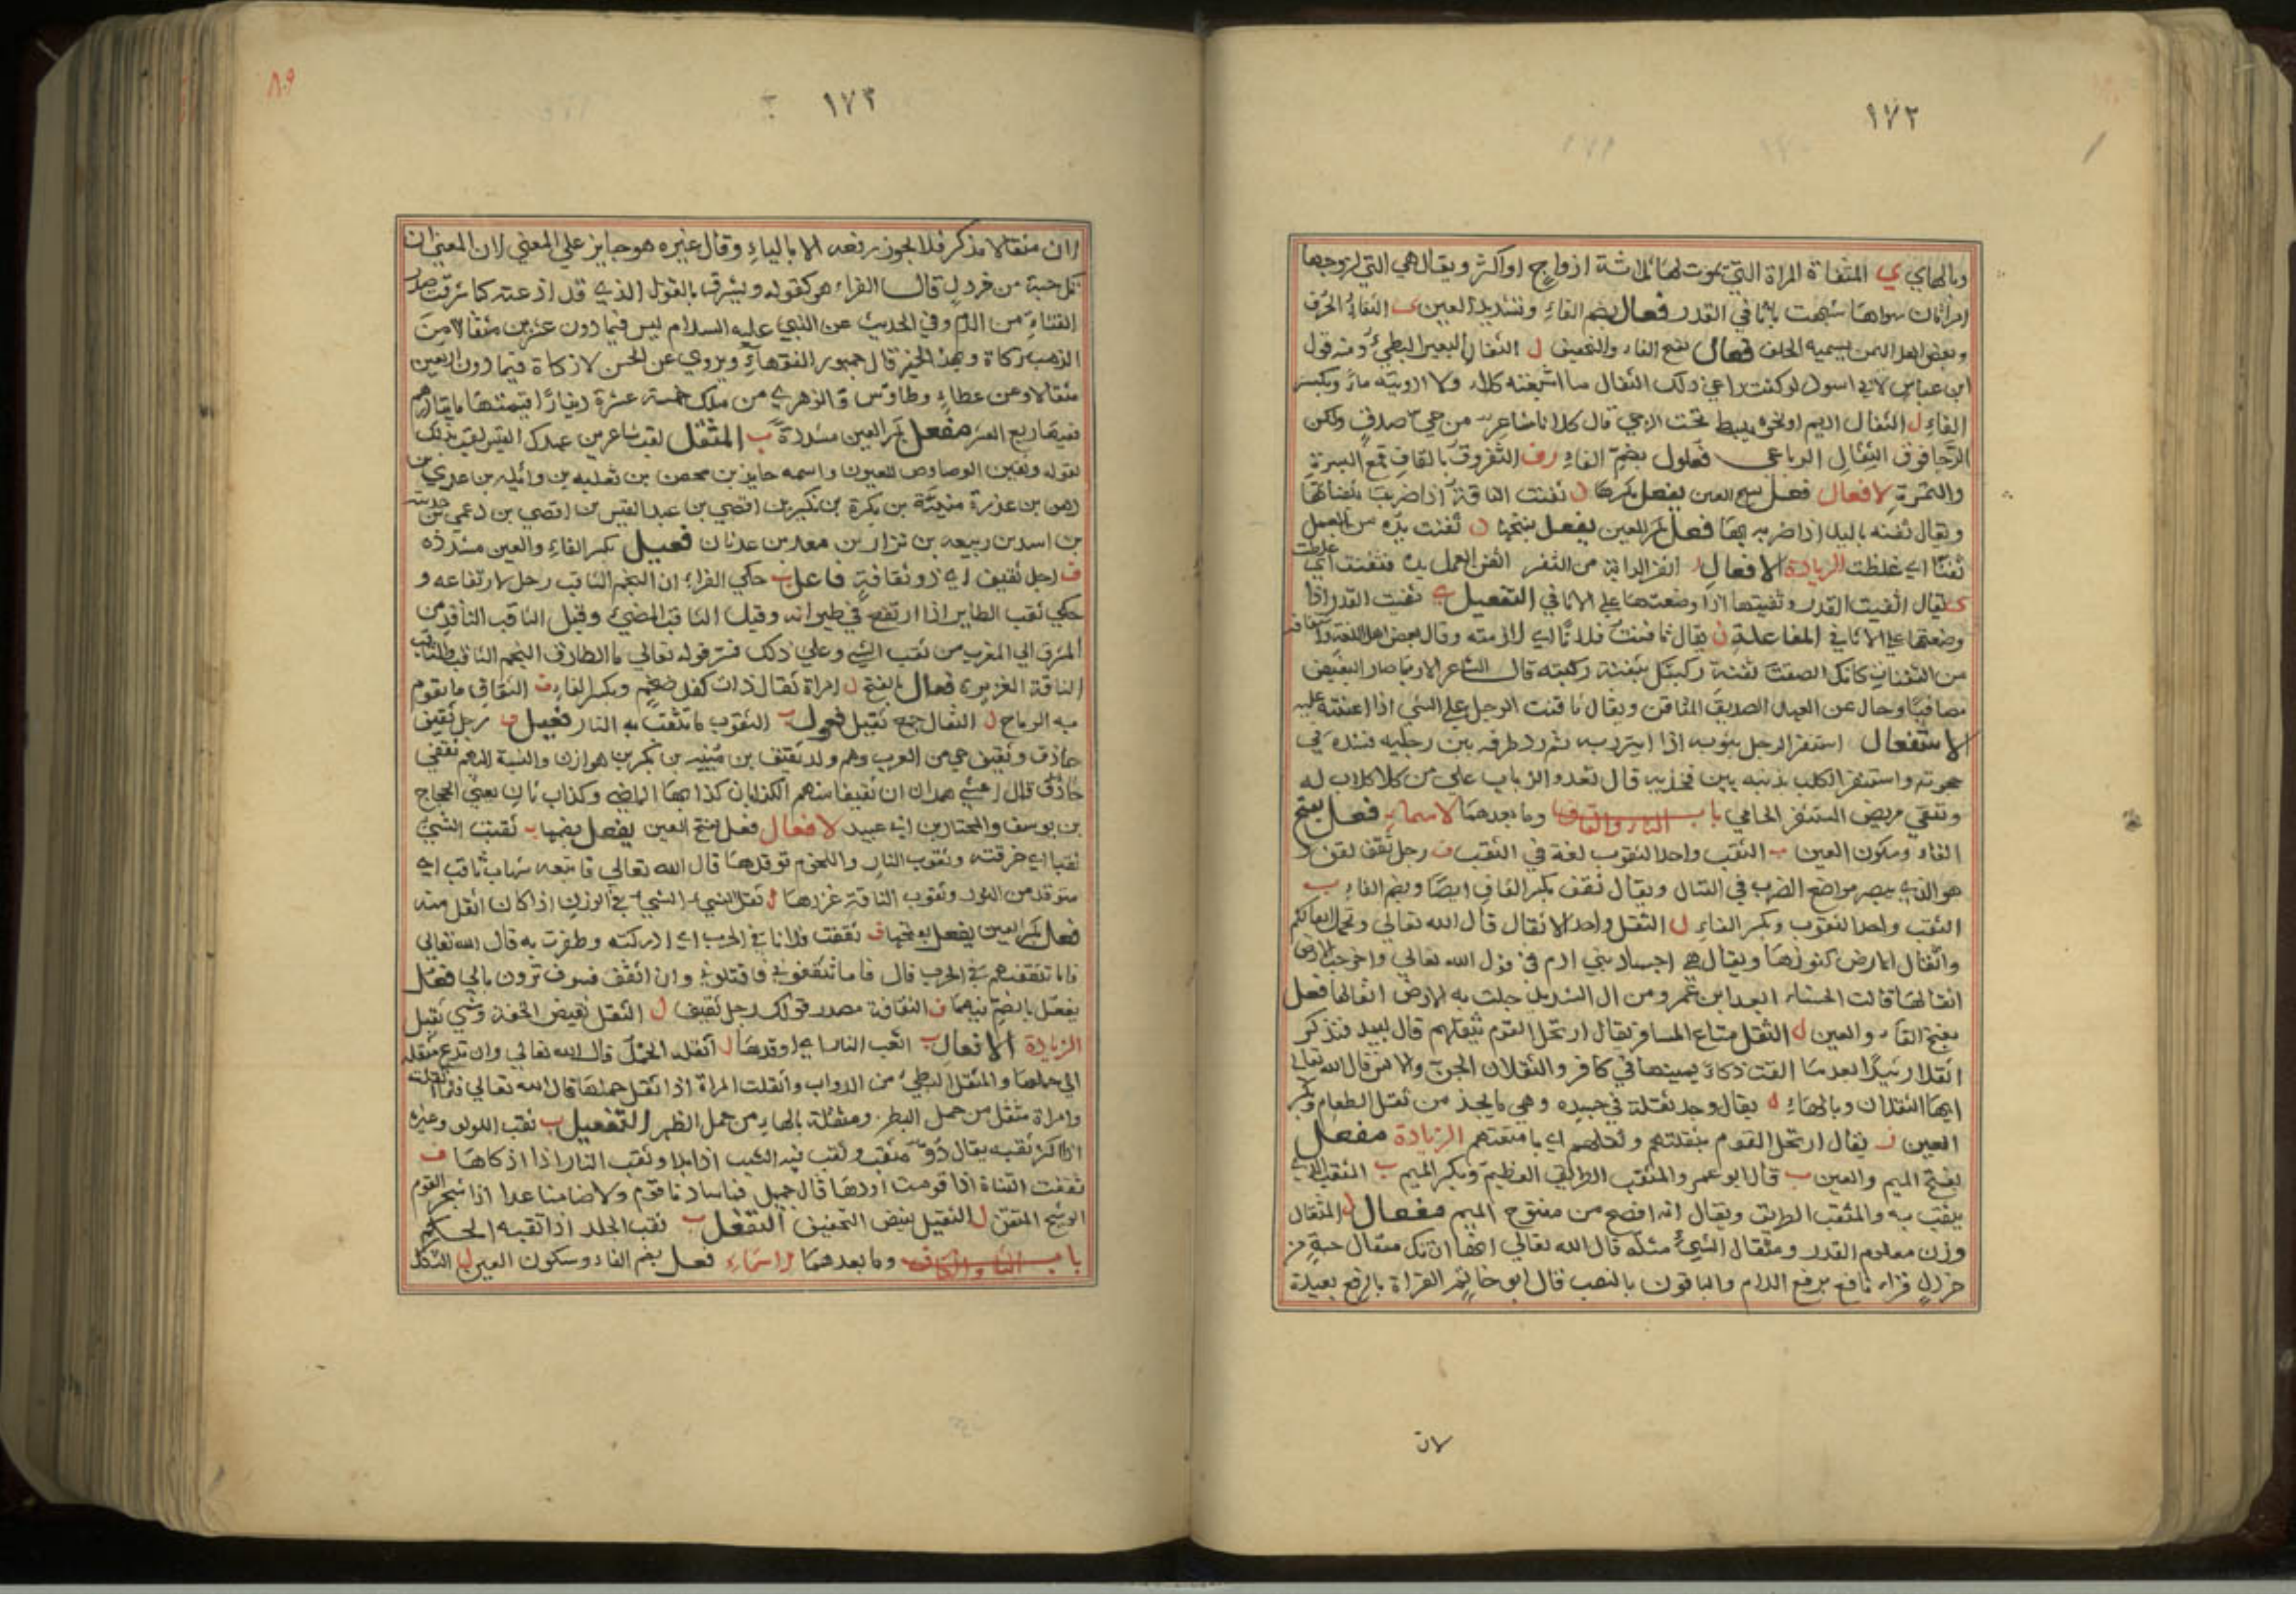 ١٧٢
وبالهاي ي المثفاة المراة التي يموت لها ثلاثة ازواج او اكثر ويقال هي التي لزوجها
امراتان سواها شبهت باثافي القدر فعال بضم الفاء وتشديد العين ى الثفاء الحرف
وبعض اهل اليمن يسميه الحلف فعال بفتح الفاء والتخفيف ل الثفال البعير البطيء ومنه قول
ابن عباس لابي اسود لو كنت راعي ذلك الثفال ما اشبعته كلاء ولا ارويته ماء وبكسر
الفاء ل الثفال اديم او نحوه يبسط تحت الرحي قال كلانا شاعر من حي صدق ولكن
الرحا فوق الثفال الرباعي فعلول بضم الفاء رف الثفروق بالقاف قمع البسرة
والتمرة الافعال فعل بفتح العين يفعل بكسرها ن ثفنت الناقة اذا ضربت بثفناتها
ويقال ثفنه باليد اذا ضربه بها فعل بكسر العين يفعل بفتحها ن ثفنت يده من العمل
ثفنا اي غلظت الزيادة الافعال ر اثفر الدابة من الثفر اثفن العمل يده فثفنت اي غلظت
ى يقال اثفيت القدر وثفيتها اذا وضعتها على الاثافي التفعيل ي ثفيت القدر اذا
وضعتها على الاثافي المفاعلة ن يقال ثافنت فلانا اي لازمته وقال بعض اهل اللغة
من الثفنات كانك الصقت ثفنة ركبتك بثفنة ركبته قال الشاعر الا ربما صار البغيض
مصافيا وحال عن العهد الصديق المثافن ويقال ثافنت الرجل على الشي اذا اعنته عليه
الاستفعال استثفر الرجل بثوبه اذا ايتزر به ثم رد طرفه بين رجليه فشده في
حجزته واستثفر الكلب بذنبه بين فخذيه قال تعدو الذياب على من لا كلاب له
وتتقي مربض المستثفر الحامي باب الثاء والقاف وما بعدهما الاسماء فعل بفتح
الفاء وسكون العين ب الثقب واحد الثقوب لغة في الثقب ف رجل ثقف لقف
هو الذي يبصر مواضع الضرب في القتال ويقال ثقف بكسر القاف ايضا وبضم الفاء ب
الثقب واحد الثقوب وبكسر الفاء ل الثقل واحد الاثقال قال الله تعالي وتحمل اثقالكم
واثقال الارض كنوزها ويقال هي اجساد بني ادم في قول الله تعالي واخرجت الارض
اثقالها قالت الخنساء ابعد ابن عمرو من ال الشريد حلت به الارض اثقالها فعل
بفتح الفاء والعين ل الثقل متاع المسافر يقال ارتحل القوم بثقلهم قال لبيد فتذكر
اثقلا رثيدا بعدما القت ذكاء يمينها في كافر والثقلان الجن والانس قال الله تعالى
ايها الثقلان وبالهاء ل يقال وجد ثقلة في جسده وهي ما يجد من ثقل الطعام وبكسر
العين ل يقال ارتحل القوم بثقلتهم وثقلهم اي بامتعتهم الزيادة مفعل
بفتح الميم والعين ب قال ابو عمرو المثقب الطريق العظيم وبكسر الميم ب المثقب الذي
يثقب به والمثقب الطريق ويقال انه افصح من مفتوح الميم مفعال ل المثقال
وزن معلوم القدر ومثقال الشيء مثله قال الله تعالي انها ان تك مثقال حبة من
خردل قراء نافع برفع اللام والباقون بالنصب قال ابو حاتم القراة بالرفع بعيدة
لان
٨٠٩
١٧٣
لان مثقالا مذكر فلا يجوز رفعه الا بالياء وقال غيره هو جايز على المعني لان المعني ان
تك حبة من خردل قال الفراء هو كقوله ويشرق بالقول الذي قد اذعته كما شرقت صدر
القناة من الدم وفي الحديث عن النبي عليه السلام ليس فيما دون عشرين مثقالا من
الذهب زكاة وبهذا الخبر قال جمهور الفقهاء ويروي عن الحسن لا زكاة فيما دون اربعين
مثقالا وعن عطاء وطاوس والزهري من ملك خمسة عشرة دينارا قيمتها مايتا درهم
ففيها ربع العشر مفعل بكسر العين مشددة ب المثقب لقب شاعر من عبد القيس لقب بذلك
لقوله وثقبن الوصاوص للعيون واسمه عايذ بن محصن بن ثعلبه بن وائله بن عدي بن
دهن بن عذرة منبه بن بكرة بن لكيز بن افصي بن عبد القيس بن افصي بن دعمي بن جديلة
بن اسد بن ربيعه بن نزار بن معد بن عدنان فعيل بكسر الفاء والعين مشددة
ف رجل ثقيف اي ذو ثقافة فاعل ب حكي الفراء ان النجم الثاقب رحل لارتفاعه و
حكي ثقب الطاير اذا ارتفع في طيرانه وقيل الثاقب المضيء وقيل الثاقب النافذ من
المشرق الي المغرب من ثقب الشي وعلى ذلك فسر قوله تعالي والطارق النجم الثاقب والثاقب
الناقة الغزيرة فعال بالفتح ل امراة ثقال ذات كفل ضخم وبكسر الفاء ف الثقاف ما يقوم
به الرماح ل الثقال جمع ثقيل فعول ب الثقوب ما تثقب به النار فعيل ف رجل ثقيف
حاذق وثقيف حي من العرب وهم ولد ثقيف بن منبه بن بكر بن هوازن والنسبة اليهم ثقفي
قال اعشي همدان ان ثقيفا منهم الكذابان كذابها الماضي وكذاب ثان يعني الحجاج
بن يوسف والمختار بن ابي عبيد الافعال فعل بفتح العين يفعل بضمها ب ثقبت الشيء
ثقبا اي خرقته وثقوب النار والنجوم توقدها قال الله تعالي فاتبعه شهاب ثاقب اي
متوقد من النور وثقوب الناقة غزرها ل ثقل الشيء الشيء في الوزن اذا كان اثقل منه
فعل بكسر العين يفعل بفتحها ف ثقفت فلانا في الحرب اي ادركته وظفرت به قال الله تعالي
فاما تثقفنهم في الحرب قال فاما تثقفوني فاقتلوني وان اثقف فسوف ترون بالي فعل
يفعل بالضم فيهما ف الثقافة مصدر قولك رجل ثقيف ل الثقل نقيض الخفة وشي ثقيل
الزيادة الافعال ب اثقب النار اي اوقدها ل اثقله الحمل قال الله تعالي وان تدع مثقلة
الي حملها والمثقل البطيء من الدواب واثقلت المراة اذا ثقل حملها قال الله تعالي فلما اثقلت
وامراة مثقل من حمل البطن ومثقلة بالهاء من حمل الظهر التفعيل ب ثقب اللولو وغيره
اذا اكثر ثقبه يقال در مثقب وثقب فيه الشيب اذا بدا وثقب النار اذا اذكاها ف
ثقفت القناة اذا قومت اودها قال جميل
الوشيج المثقف ل التثقيل نقيض التخفيف التفعل ب تثقب الجلد اذا ثقبه الحلم
باب الثاء والكاف وما بعدهما الاسماء فعل بضم الفاء وسكون العين ل الثكل